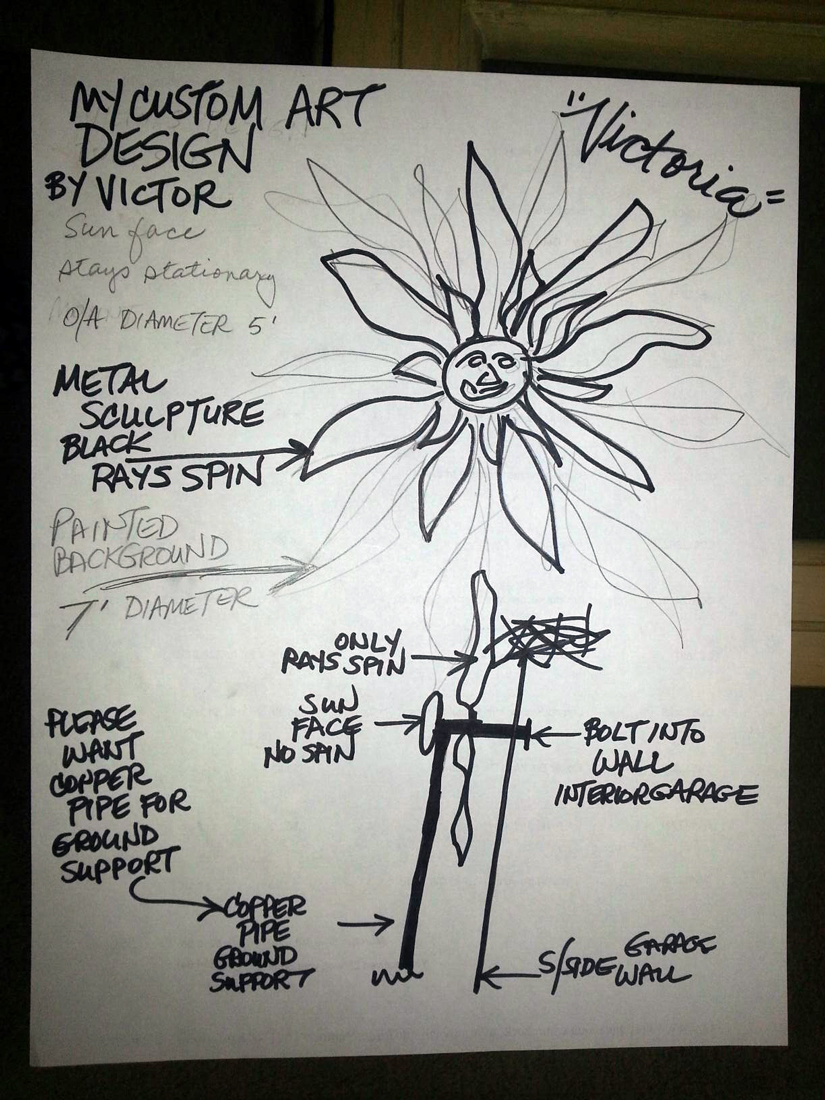 MY CUSTOM ART
DESIGN
BY VICTOR
"Victoria"
Sun face
stays stationary
O/A DIAMETER 5'
METAL
SCULPTURE
BLACK
RAYS SPIN
PAINTED
BACKGROUND
7' DIAMETER
ONLY
RAYS SPIN
SUN
FACE
NO SPIN
BOLT INTO
WALL
INTERIOR GARAGE
PLEASE
WANT
COPPER
PIPE FOR
GROUND
SUPPORT
COPPER
PIPE
GROUND
SUPPORT
S/SIDE GARAGE
WALL